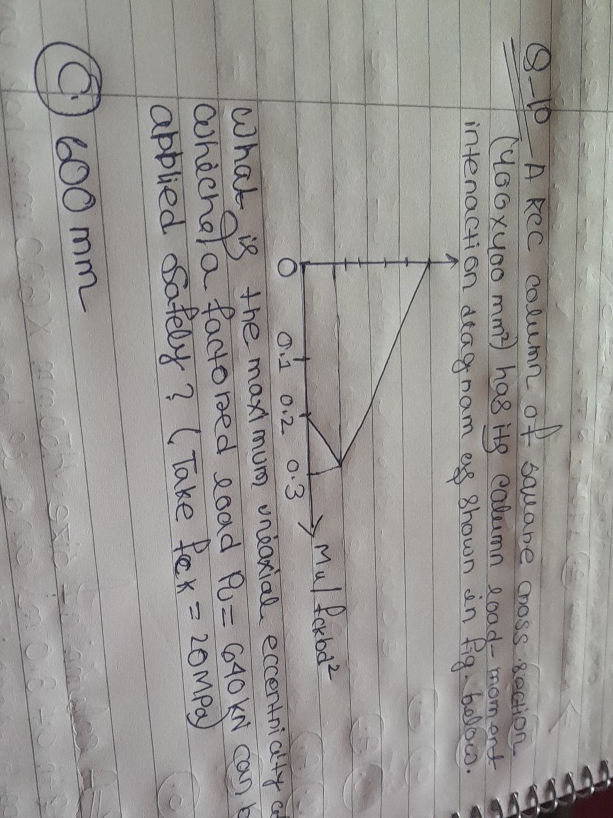 Q-10 A RCC column of square cross section
(400x400 mm²) has its column load-moment
interaction diagram as shown in fig. below.
0
0.1
0.2
0.3
Mu/fckbd²
What is the maximum uniaxial eccentricity at
which a factored load Pu = 640 kN can
applied safely? (Take fck = 20MPa)
C. 600 mm